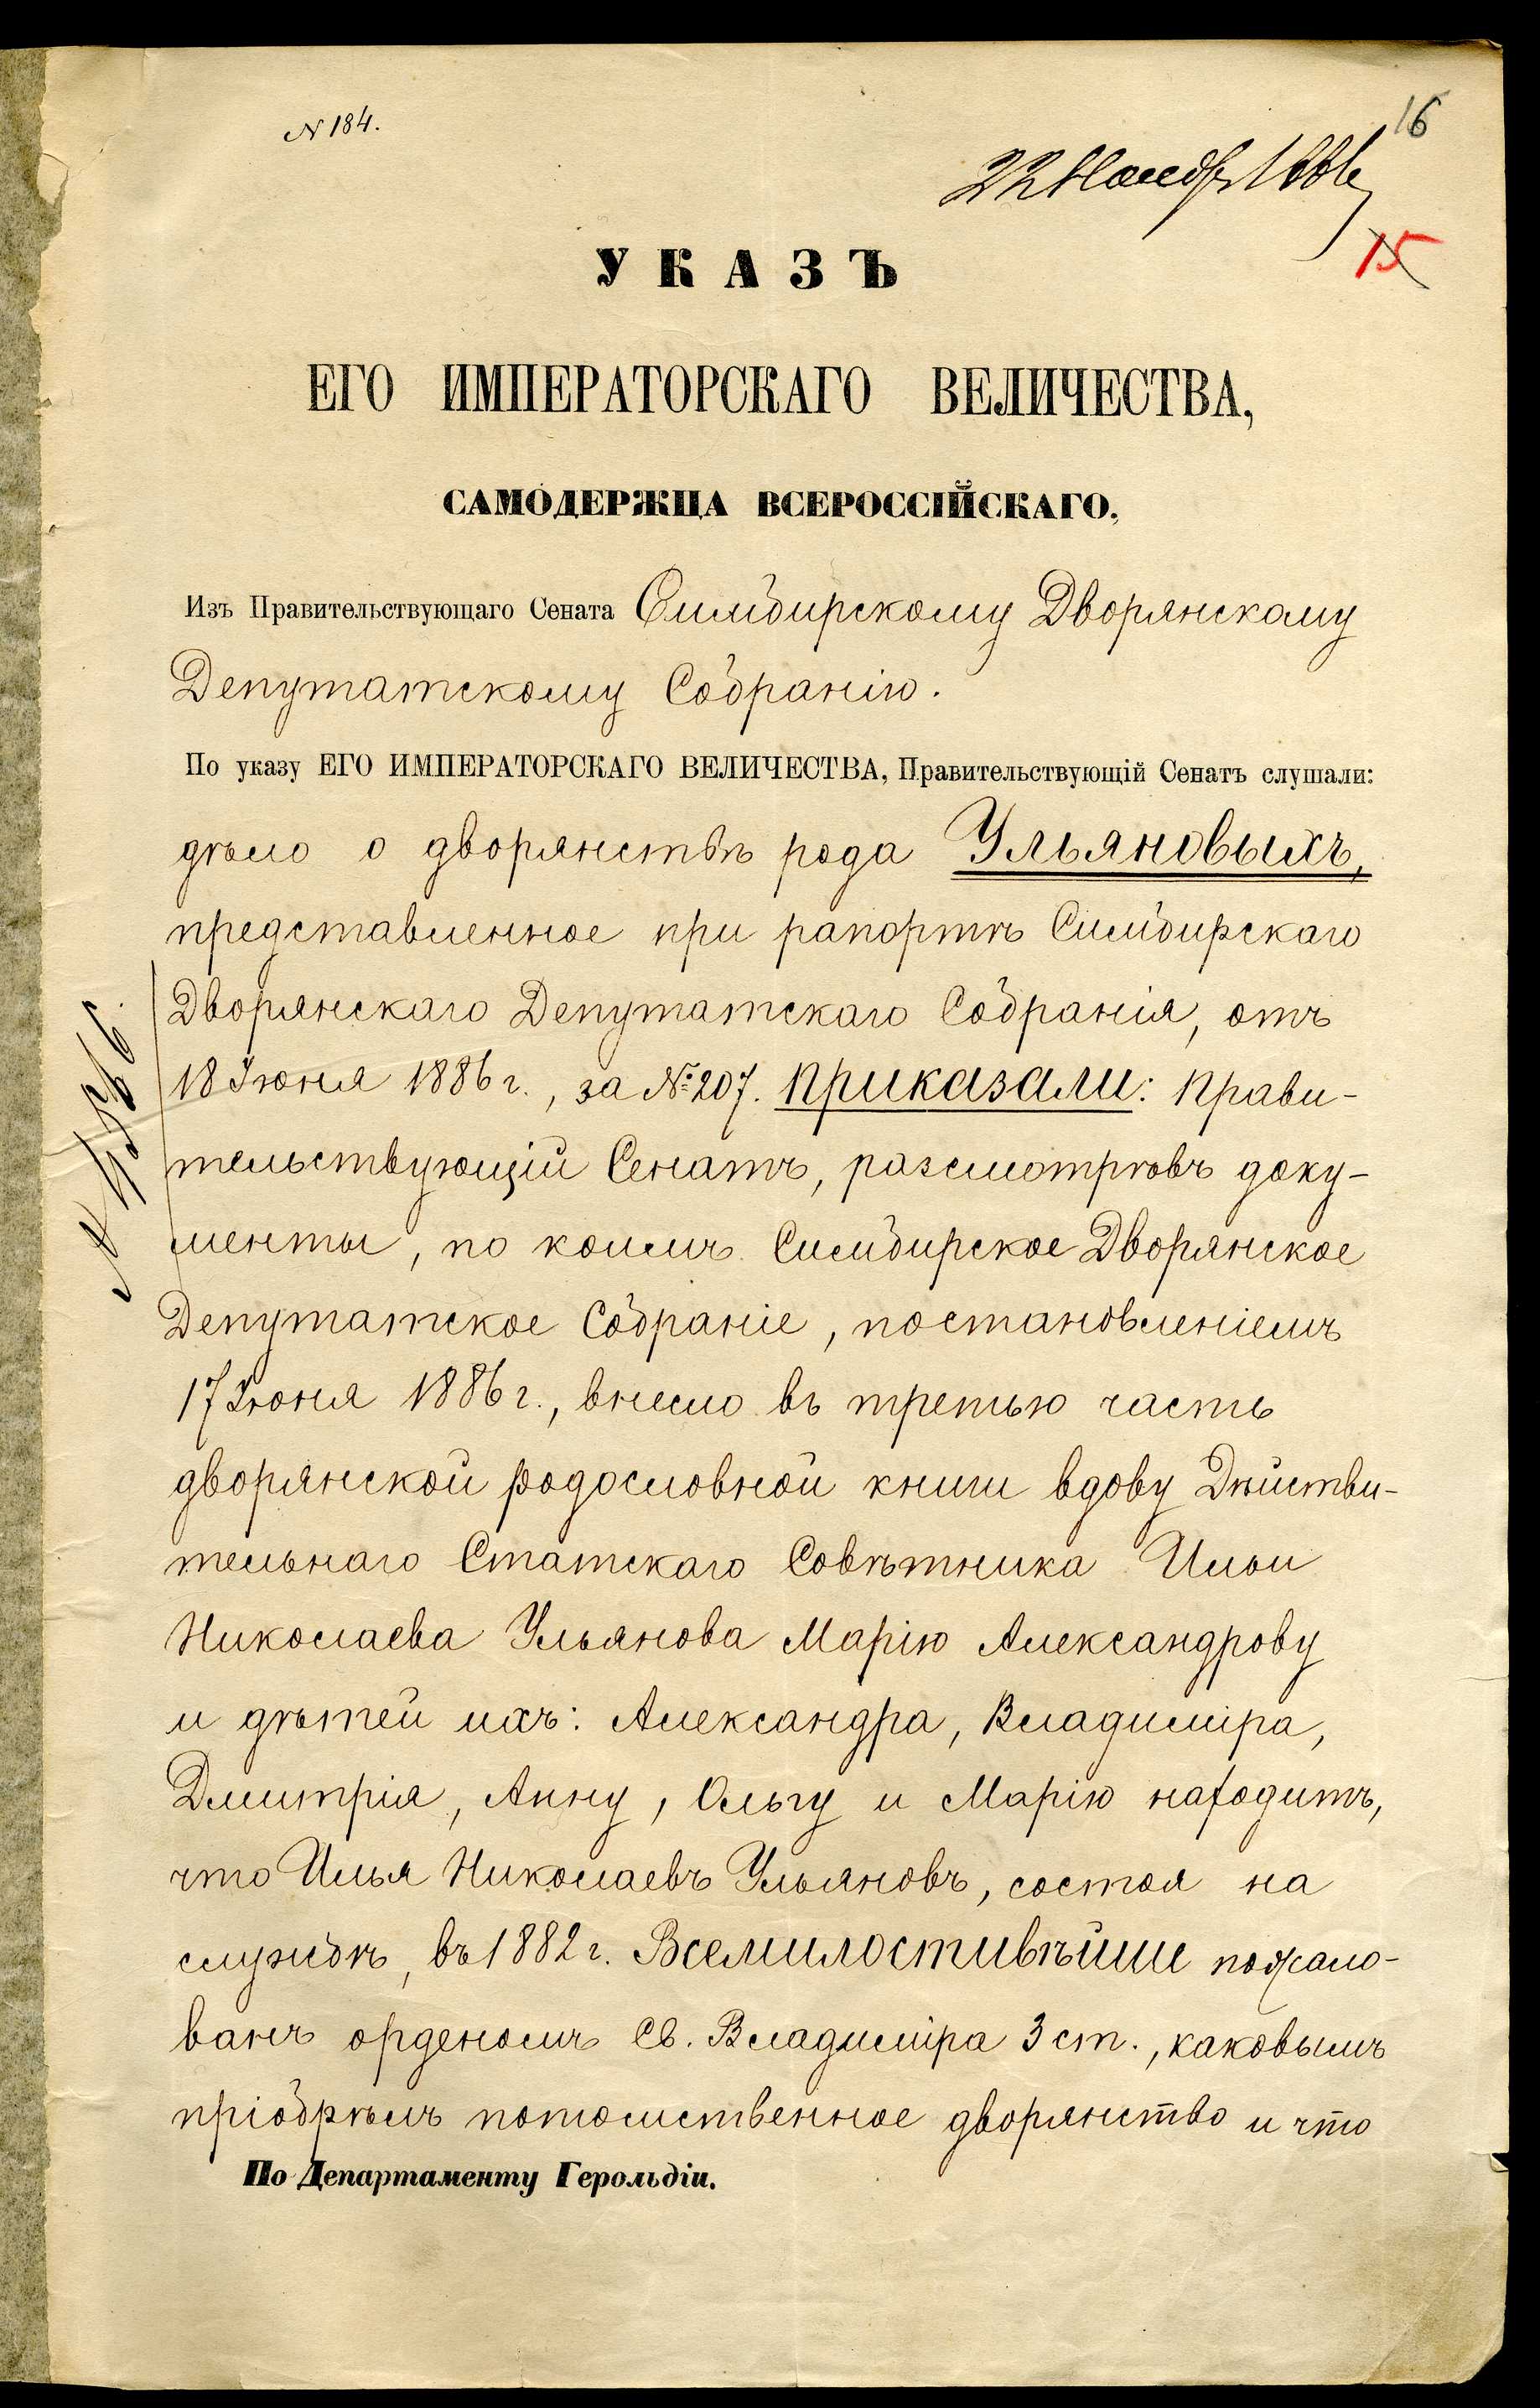 N 184.
16
22 Ноября 1886
15
УКАЗЪ
ЕГО ИМПЕРАТОРСКАГО ВЕЛИЧЕСТВА,
САМОДЕРЖЦА ВСЕРОССІЙСКАГО.
Изъ Правительствующаго Сената Симбирскому Дворянскому
Депутатскому Собранію.
По указу ЕГО ИМПЕРАТОРСКАГО ВЕЛИЧЕСТВА, Правительствующій Сенатъ слушали:
дѣло о дворянствѣ рода Ульяновыхъ,
представленное при рапортѣ Симбирскаго
Дворянскаго Депутатскаго Собранія, отъ
18 Іюня 1886 г., за № 207. приказали: Прави-
тельствующій Сенатъ, разсмотрѣвъ доку-
менты, по коимъ Симбирское Дворянское
Депутатское Собраніе, постановленіемъ
17 Іюня 1886 г., внесло въ третью часть
дворянской родословной книги вдову Дѣйстви-
тельнаго Статскаго Совѣтника Ильи
Николаева Ульянова Марію Александрову
и дѣтей ихъ: Александра, Владиміра,
Дмитрія, Анну, Ольгу и Марію находитъ,
что Илья Николаевъ Ульяновъ, состоя на
службѣ, въ 1882 г. Всемилостивѣйше пожало-
ванъ орденомъ Св. Владиміра 3 ст., каковымъ
пріобрѣлъ потомственное дворянство и что
По Департаменту Герольдіи.